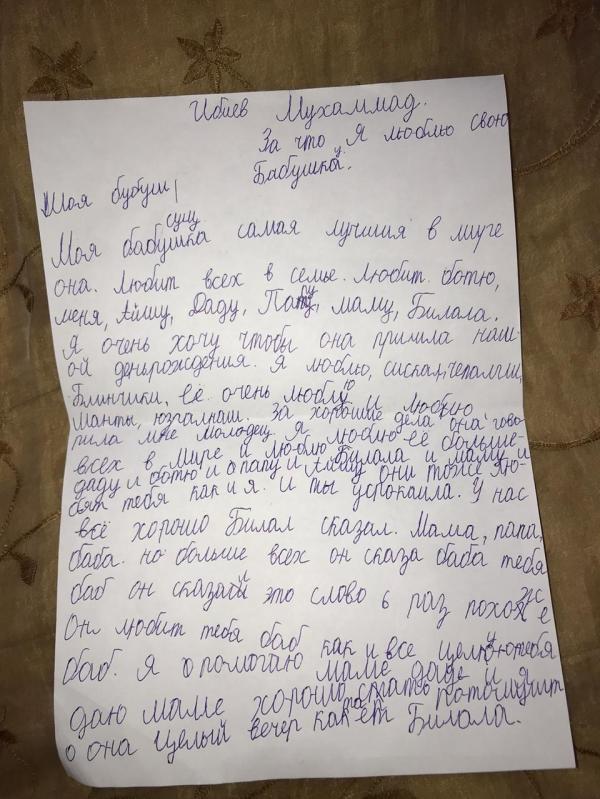 Ибиев Мухаммад.
За что я люблю свою
Бабушку.
Моя бубуш
Моя бабушка самая лучшия в мире
она. Любит всех в семье. Любит. ботю,
меня, Айшу, Даду, Папу, маму, Билала.
Я очень хочу чтобы она пришла на ш
ой деньрождения. Я люблю, сискал, чепалгш,
Блинчики, её очень люблю и Люблю
Манты, юзгалнаш. За хорошие дела она гово
рила мне Молодец я люблю её больше-
всех в мире и люблю Билала и маму и
даду и ботю и о папу и Айшу они тоже лю-
бят тебя как и я. и ты успокаила. У нас
всё хорошо Билал сказал. Мама, папа,
баба. но больше всех он сказа баба тебя
баб он сказал это слово 6 раз похоже
Он любит тебя баб как и все целую тебя
баб. я о помогаю маме даде и я
даю маме хорошо спать потомушт
о она целый вечер кает Билала.